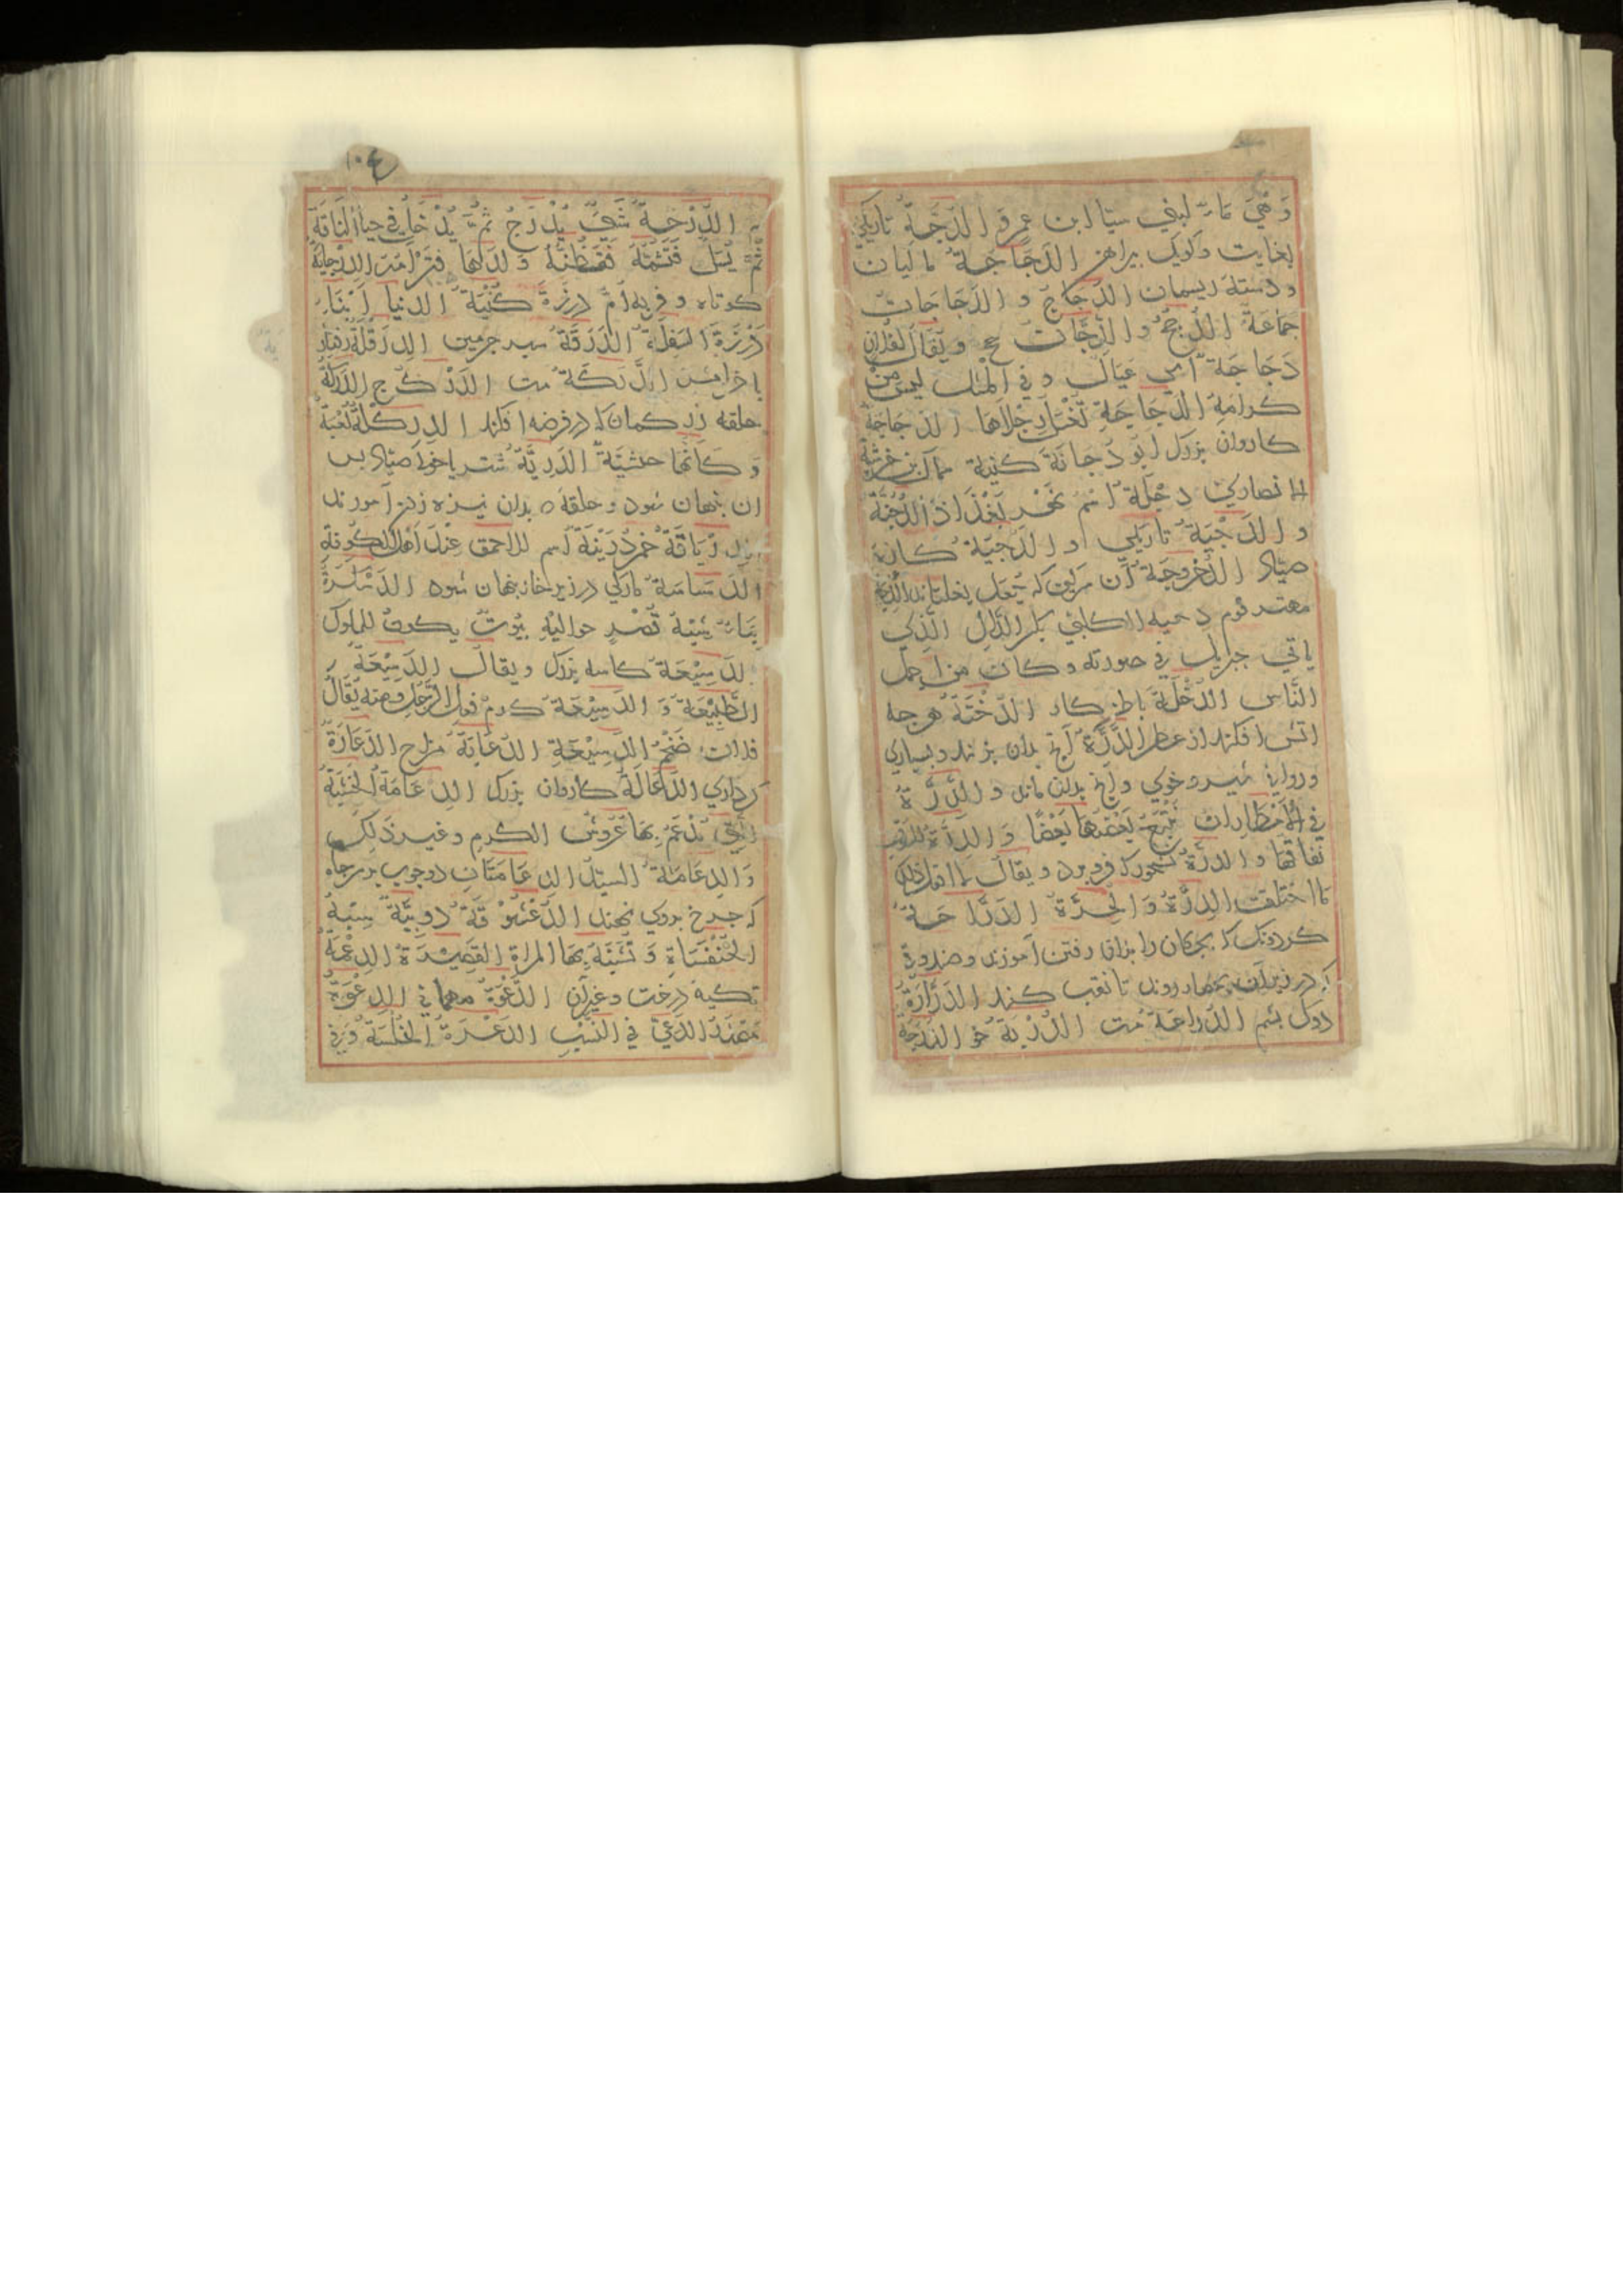 وَ هِيَ مَاءٌ لبني ستا ابن عمرو الدُّجَّة تاريكي
بغايت وكويك بيراهن الدَجَاجَةُ ماكيان
ودسته ريسمان الدَّجَاجُ و الدَّجَاجَاتُ
جَمَاعَة الدُّجج و الدَّجَّاجَات ج ويقال لفلان
دَجَاجَة اي عيال و في المثل ليس من
كرامة الدَجَاجَةِ تُغْسَل رِجْلاهَا الدجاجة
كاروان بزرك ابو دجانة كنية سماك بن خرشة
الانصاري دجلة اسم نهر بغداذ الدُّجْنَة
و الدُجْنِيَةُ تاريكي و الدجيّة كازه
صياد
مهتر قوم دحيه الكلبي بكسر الدال الذي
ياتي جبريل في صورته وكان من اجمل
النَّاس الدُخْلَة باطن كار الدُّخْنَة هرجه
اتش افكنند از عطر الدِّرَّة آنج بدان بزنند وبسياري
ورواني شير وخوي وانج بدان ماند والدِّرَّة
في الامطار ان يَتْبَعَ بَعْضُهَا بَعْضًا وَ الدرة للسوق
نفاقها و الدرة ويقال لا افعل ذلك
مَا اختلفت الدِرَّةُ وَ الجِرَّة الدَرَّاجَة
كردونك كه بجكان را بران رفتن آموزند و صندوق
كه در زير آن بجهار روند تا نقب كنند الدَرَّارَةُ
دوك بشم الدُرَّاعَة مت الدُرْبَة خو الدَّرَجَة
١٠٤
الدُّرْجَةُ شَيْءٌ يُدْرَجُ ثُمَّ يُدْخَل في حياء النَّاقَة
ثُمَّ يُسَل فَتَشُمُّهُ فَتَظُنُّهُ وَلَدَهَا فَتَرْاَمُهُ الدِرْحَايَة
كوتاه و فربه اُمّ دَرْزَةَ كُنْيَة الدنيا اَبْنَاء
دَرْزَةَ السَفِلَة الدَّرَقَةُ سبر جرمين
الدَرَكَةُ
حلقه زه كمان كه در فرضه افكنند الدِرَكْلَة لُعْبَة
وَ كَانَّهَا حبشيّة الدَرِيَّةُ شتر يا خر كه صياد بس
ان بنهان شود و حلقه كه بدان نيزه زدن آموزند
دُرَيْنَةُ اسم للاحمق عِنْدَ اَهل الكوفة
الدَسَّاسَةُ ماركي در زير خاك بنهان شود الدَسْكَرَةُ
بِنَاءٌ شِبْهُ قَصْرٍ حَوَالَيْهِ بُيُوتٌ يكون للملوك
الدَسِيْعَة كاسه بزرك ويقال الدَسِيْعَةُ
الطَّبِيْعَةُ وَ الدَسِيْعَة كرم فعل الرَّجُل ومنه يُقَالُ
فلان ضَخْمُ الدَسِيْعَةِ الدُعَابَةُ مزاح الدَعَارَةُ
كرداري الدَعَالَة كاروان بزرك الدِعَامَةُ الخَشَبَةُ
الَّتِي تُدْعَمُ بِهَا عُرُوشُ الكرم وغير ذَلِكَ
وَ الدِعَامَةُ السَيِّدُ الدِعَامَتَان دو جوب بر سر جاه
كه جرخ بر وي نهند الدُعْشُوْقَةُ دُوَيْبَّة شِبْهُ
الخُنْفَسَاءِ وَ تُشَبَّهُ بِهَا المراة القَصِيْرَة الدِعْمَةُ
تكيه درخت وغيران الدَّعْوَةُ مهماني الدِعْوَةُ
مَصْدَرُ الدَعِيِّ في النَسَبِ الدَغْرَةُ الخُلْسَةُ وَ فِي